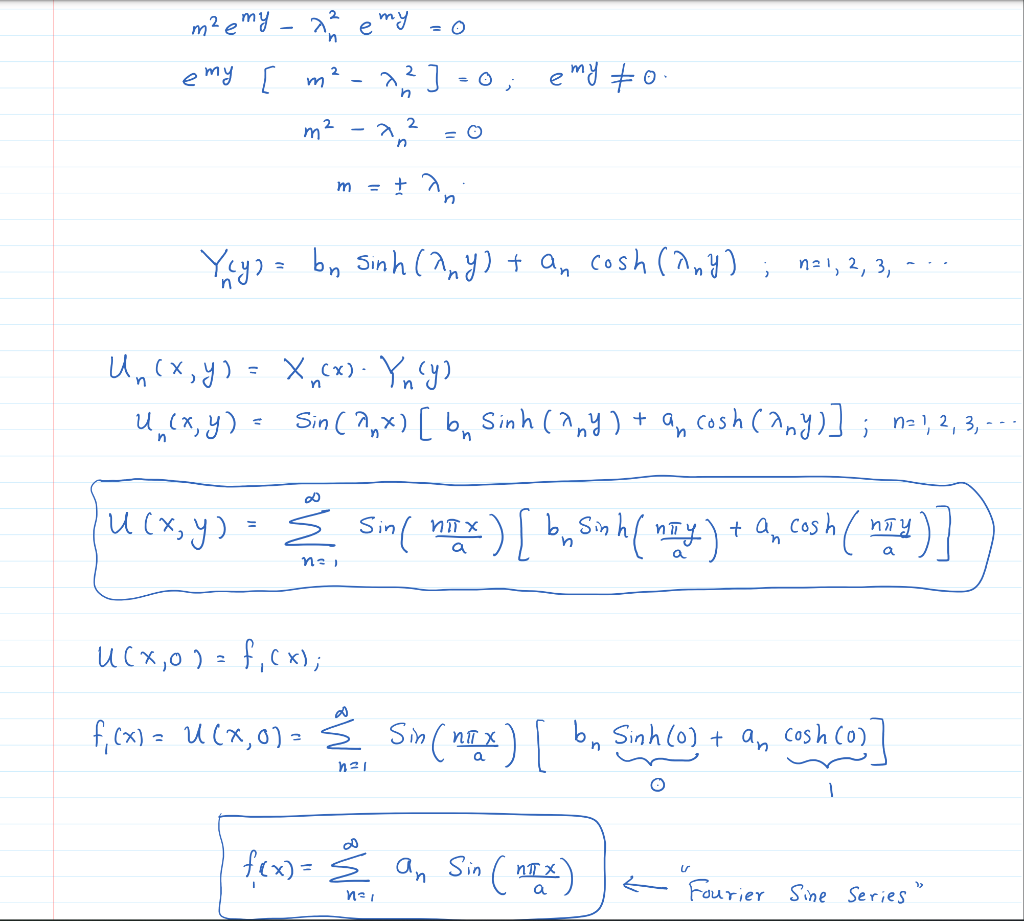 m² e^{my} - λₙ² e^{my} = 0
e^{my} [ m² - λₙ² ] = 0 ; e^{my} ≠ 0.
m² - λₙ² = 0
m = ± λₙ.
Yₙ(y) = bₙ sinh(λₙy) + aₙ cosh(λₙy) ; n=1, 2, 3, ....
Uₙ(x,y) = Xₙ(x) · Yₙ(y)
Uₙ(x,y) = Sin(λₙx) [ bₙ Sinh(λₙy) + aₙ cosh(λₙy) ] ; n=1, 2, 3, ....
U(x,y) = ∑_{n=1}^{∞} Sin(nπx/a) [ bₙ Sinh(nπy/a) + aₙ cosh(nπy/a) ]
U(x,0) = f₁(x);
f₁(x) = U(x,0) = ∑_{n=1}^{∞} Sin(nπx/a) [ bₙ Sinh(0) + aₙ cosh(0) ]
0 1
f₁(x) = ∑_{n=1}^{∞} aₙ Sin(nπx/a) ← "Fourier Sine Series"